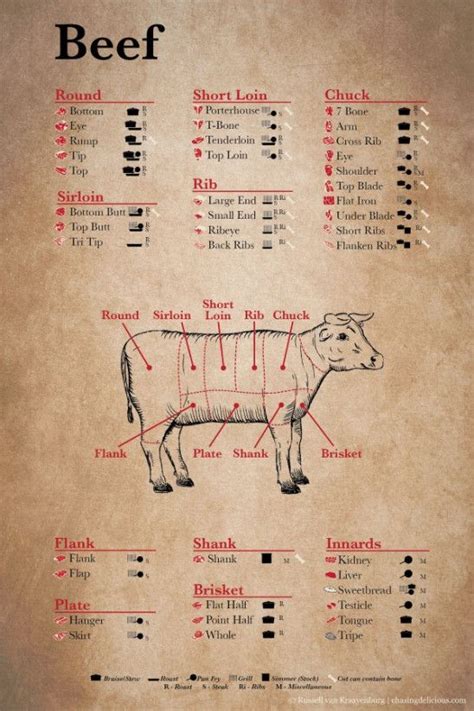 Beef
Round
Bottom R S
Eye R S
Rump R
Tip R S
Top R S
Sirloin
Bottom Butt R S
Top Butt R S
Tri Tip R S
Short Loin
Porterhouse S
T-Bone S
Tenderloin R S
Top Loin R S
Rib
Large End R S Ri
Small End R S Ri
Ribeye R S
Back Ribs Ri
Chuck
7 Bone R S
Arm R S
Cross Rib R
Eye R S
Shoulder
Top Blade
Flat Iron S
Under Blade R S
Short Ribs Ri
Flanken Ribs Ri
Round Sirloin Short Loin Rib Chuck
Flank Plate Shank Brisket
Flank
Flank S
Flap S
Plate
Hanger S
Skirt S
Shank
Shank M
Brisket
Flat Half R
Point Half R
Whole R
Innards
Kidney M
Liver M
Sweetbread M
Testicle M
Tongue M
Tripe M
Braise/Stew Roast Pan Fry Grill Simmer (Stock) Cut can contain bone
R - Roast S - Steak Ri - Ribs M - Miscellaneous
© Russell van Kraayenburg | chasingdelicious.com